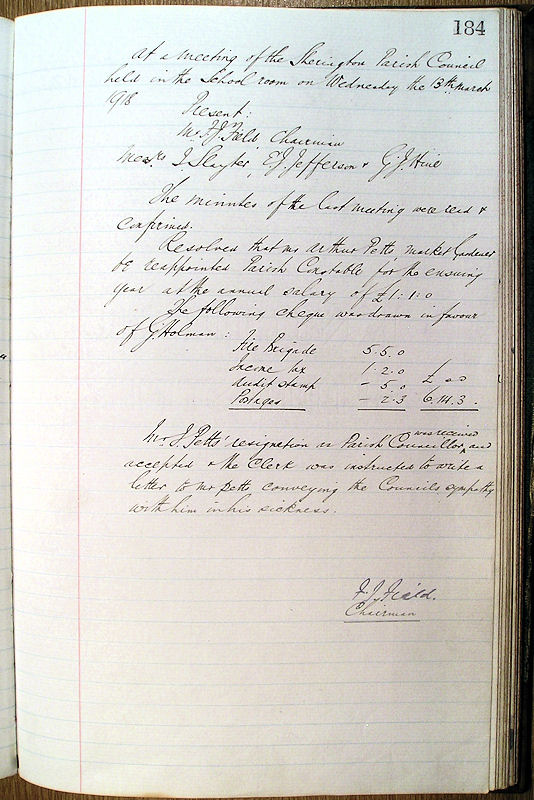 184
At a meeting of the Sherington Parish Council
held in the School room on Wednesday the 13th March
1918
Present:
Mr F.J. Field, Chairman
Messrs I. Slayter, E.J. Jefferson & G.J. Hine
The minutes of the last meeting were read &
confirmed.
Resolved that Mr Arthur Petts, market Gardener
be reappointed Parish Constable for the ensuing
year at the annual salary of £1:1:0
The following cheque was drawn in favour
of G. Holman:
Fire Brigade 5.5.0
Income tax 1.2.0
Audit stamp - 5.0 £ s d
Postages - 2.3 6.14.3.
Mr J. Petts' resignation as Parish Councillor was received and
accepted & the Clerk was instructed to write a
letter to Mr Petts conveying the Councils sympathy
with him in his sickness.
F.J. Field.
Chairman